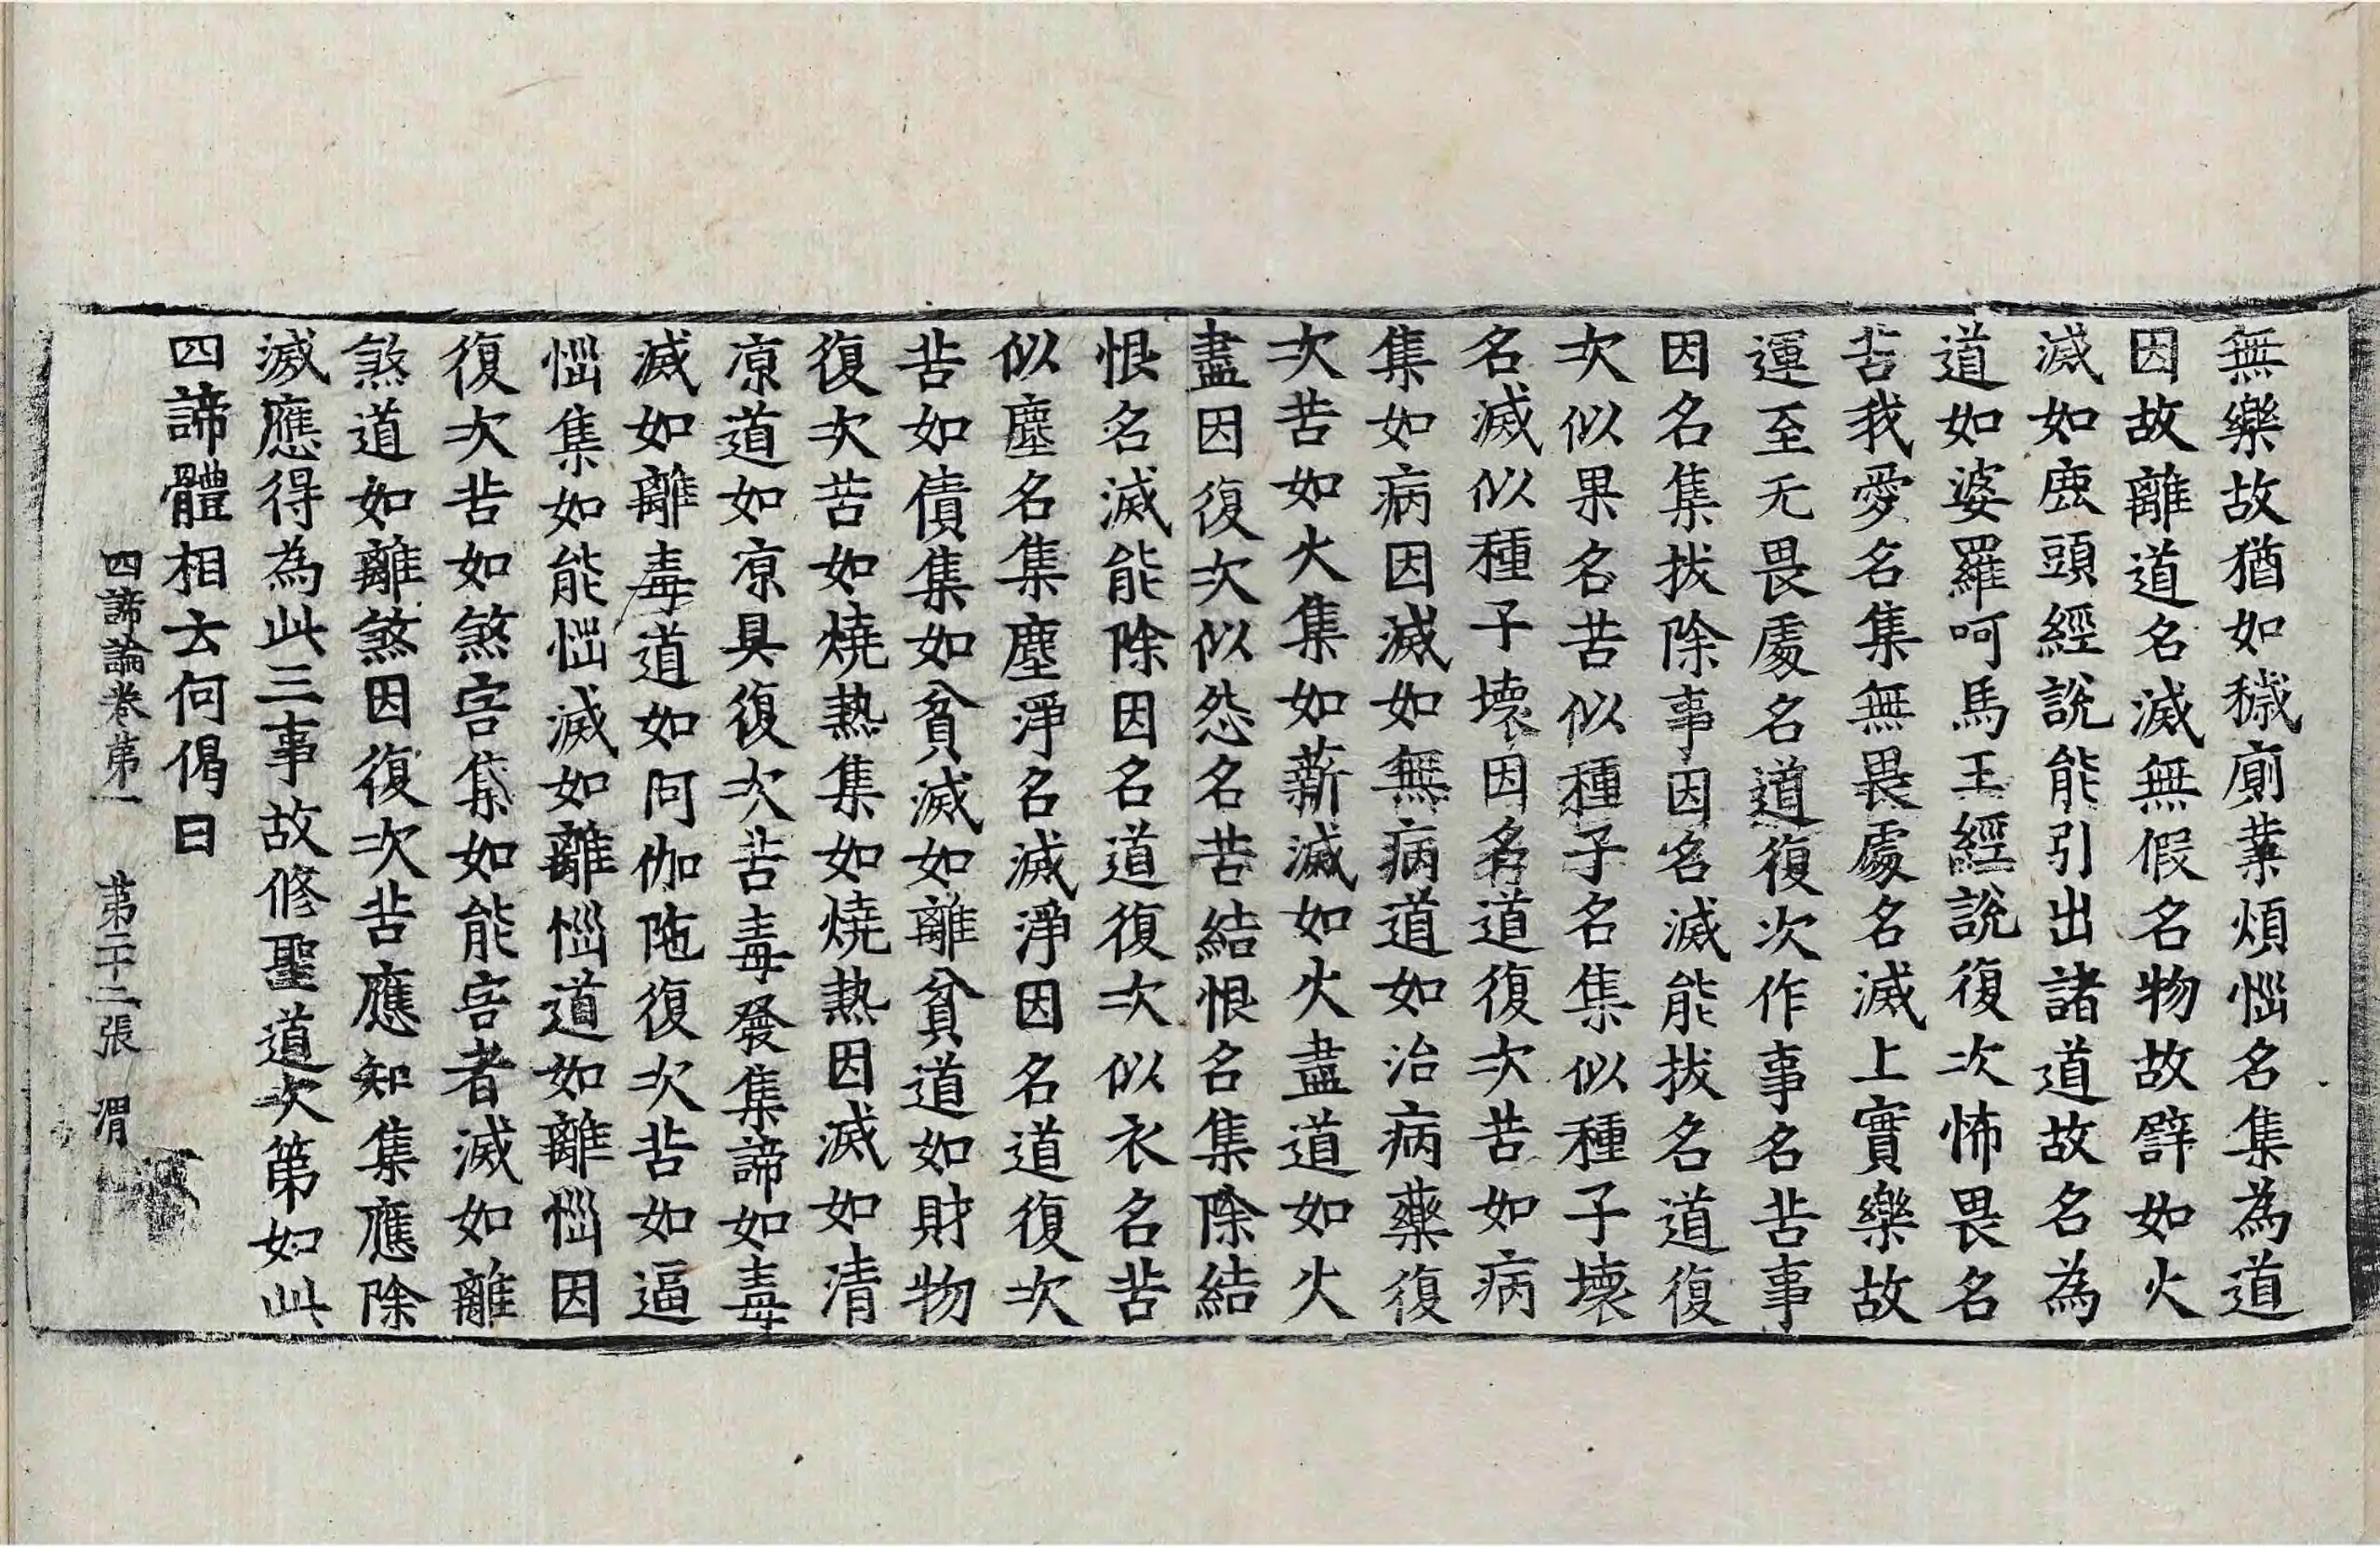 無樂故猶如穢廁業煩惱名集為道
因故離道名滅無假名物故譬如火
滅如鹿頭經說能引出諸道故名為
道如婆羅呵馬王經說復次怖畏名
苦我愛名集無畏處名滅上實樂故
運至无畏處名道復次作事名苦事
因名集拔除事因名滅能拔名道復
次似果名苦似種子名集似種子壞
名滅似種子壞因名道復次苦如病
集如病因滅如無病道如治病藥復
次苦如火集如薪滅如火盡道如火
盡因復次似怨名苦結恨名集除結
恨名滅能除因名道復次似衣名苦
似塵名集塵淨名滅淨因名道復次
苦如債集如貧滅如離貧道如財物
復次苦如燒熱集如燒熱因滅如清
凉道如凉具復次苦毒發集諦如毒
滅如離毒道如阿伽陁復次苦如逼
惱集如能惱滅如離惱道如離惱因
復次苦如煞害集如能害者滅如離
煞道如離煞因復次苦應知集應除
滅應得為此三事故修聖道次第如此
四諦體相云何偈曰
四諦論卷第一 第二十二張 渭